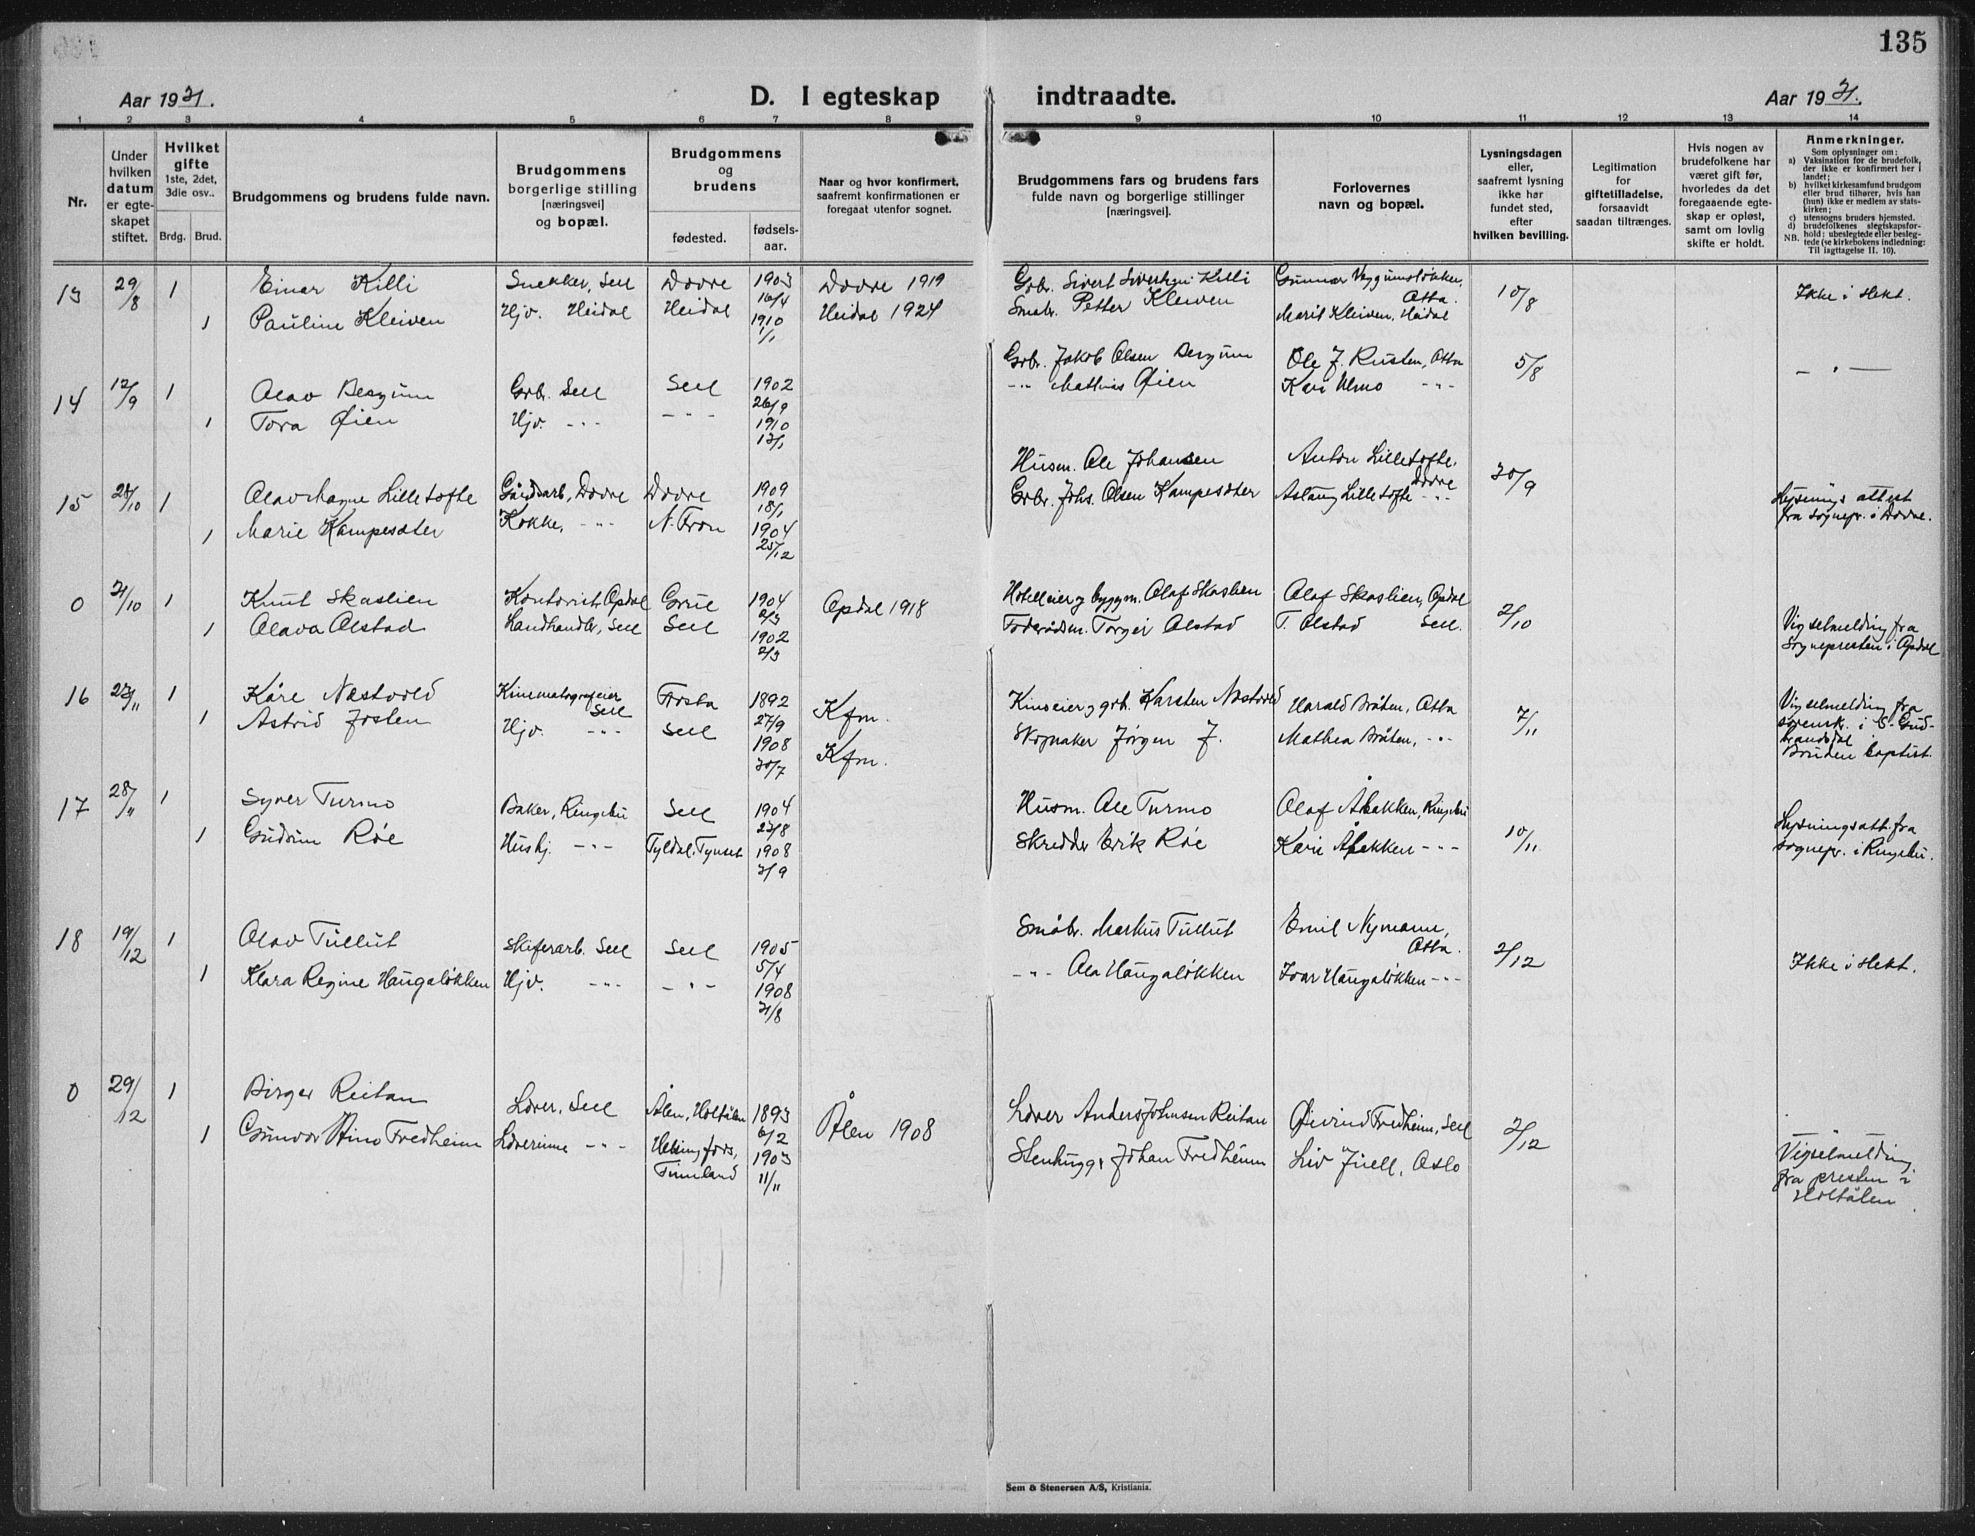 135
Aar 1931.
D. I egteskap indtraadte.
Aar 1931.
1 2 3 4 5 6 7 8 9 10 11 12 13 14
Nr.
Under hvilken datum er egteskapet stiftet.
Hvilket gifte 1ste, 2det, 3die osv..
Brdg. Brud.
Brudgommens og brudens fulde navn.
Brudgommens borgerlige stilling [næringsvei] og bopæl.
Brudgommens og brudens
fødested.
fødselsaar.
Naar og hvor konfirmert, saafremt konfirmationen er foregaat utenfor sognet.
Brudgommens fars og brudens fars fulde navn og borgerlige stillinger [næringsvei].
Forlovernes navn og bopæl.
Lysningsdagen eller, saafremt lysning ikke har fundet sted, efter hvilken bevilling.
Legitimation for giftetilladelse, forsaavidt saadan tiltrænges.
Hvis nogen av brudefolkene har været gift før, hvorledes da det foregaaende egteskap er opløst, samt om lovlig skifte er holdt.
Anmerkninger.
Som oplysninger om:
a) Vaksination for de brudefolk, der ikke er konfirmert her i landet;
b) hvilket kirkesamfund brudgom eller brud tilhører, hvis han (hun) ikke er medlem av statskirken;
c) utensogns bruders hjemsted.
d) brudefolkenes slegtskapsforhold: ubeslegtede eller beslegtede (se kirkebokens indledning: Til iagttagelse II. 10).
NB.
13 29/8 1 Einar Killi Snekker, Sell Dovre 1903 16/4 Dovre 1919 Gbr. Sivert Sivertsen Killi Gunnar Veggumsløkken, Otta. 10/8 Ikke i slekt.
1 Pauline Kleiven Hjv. Heidal Heidal 1910 1/1 Heidal 1924 Smabr. Petter Kleiven Marit Kleiven, Heidal
14 12/9 1 Olav Bergum Gbr. Sell Sell 1902 26/9 Gbr. Jakob Olsen Bergum Ole J. Rusten, Otta 5/8 — " —
1 Tora Øien Hjv. - " - - " - 1910 13/1 - " - Mathias Øien Kari Ulmo - " -
15 24/10 1 Olav Magne Lilletofte Gårdsarb, Dovre Dovre 1909 18/1 Husm. Ole Johansen Anton Lilletofte, Dovre 20/9 Lysnings attest fra sognepr. i Dovre.
1 Marie Kampesæter Kokke, - " - N. Fron 1904 25/12 Gbr. Johs. Olsen Kampesæter Aslaug Lilletofte - " -
0 31/10 1 Knut Skaslien Kontorist, Opdal Grue 1904 2/3 Opdal 1918 Hotelleier og byggm. Olaf Skaslien Olaf Skaslien, Opdal 2/10 Vigselmelding fra Sognepresten i Opdal
1 Olava Olstad Landhandler, Sell Sell 1902 2/3 Føderådsm. Torger Olstad T. Olstad Sell.
16 23/11 1 Kåre Næstvold Kinematografeier Sell Frosta 1892 27/9 Kfm. Kinoeier og gbr. Karsten Næstvold Harald Bråten, Otta 7/11 Vigselmelding fra sorensk. i S-Gudbrandsdal
1 Astrid Josten Hjv. - " - Sell 1908 30/7 Kfm. Skomaker Jørgen J. Mathea Bråten, - " - Bruden baptist.
17 28/11 1 Syver Turmo Baker, Ringebu Sell 1904 23/8 Husm. Ole Turmo Olaf Åbakken, Ringebu 10/11 Lysningsatt. fra sognepr. i Ringebu.
1 Gudrun Røe Hushj. - " - Tyldal, Tynset 1908 3/9 Skredder Erik Røe Kari Åbakken - " -
18 19/12 1 Olav Tullut Skiferarb. Sell Sell 1905 5/4 Småbr. Markus Tullut Emil Nymann, Otta. 2/12 Ikke i slekt.
1 Klara Regine Haugaløkken Hjv. - " - - " - 1908 31/8 - " - Ola Haugaløkken Ivar Haugaløkken - " -
0 29/12 1 Birger Reitan Lærer, Sell Ålen, Holtålen 1893 6/2 Ålen 1908 Lærer Anders Johnsen Reitan Øivind Fredheim, Sell 2/12 Vigselmelding fra presten i Holtålen
1 Gunvor Aino Fredheim Lærerinne - " - Helsingfors, Finnland 1903 11/11 Stenhugger Johan Fredheim Liv Juell, Oslo
Sem & Stenersen A/S, Kristiania.